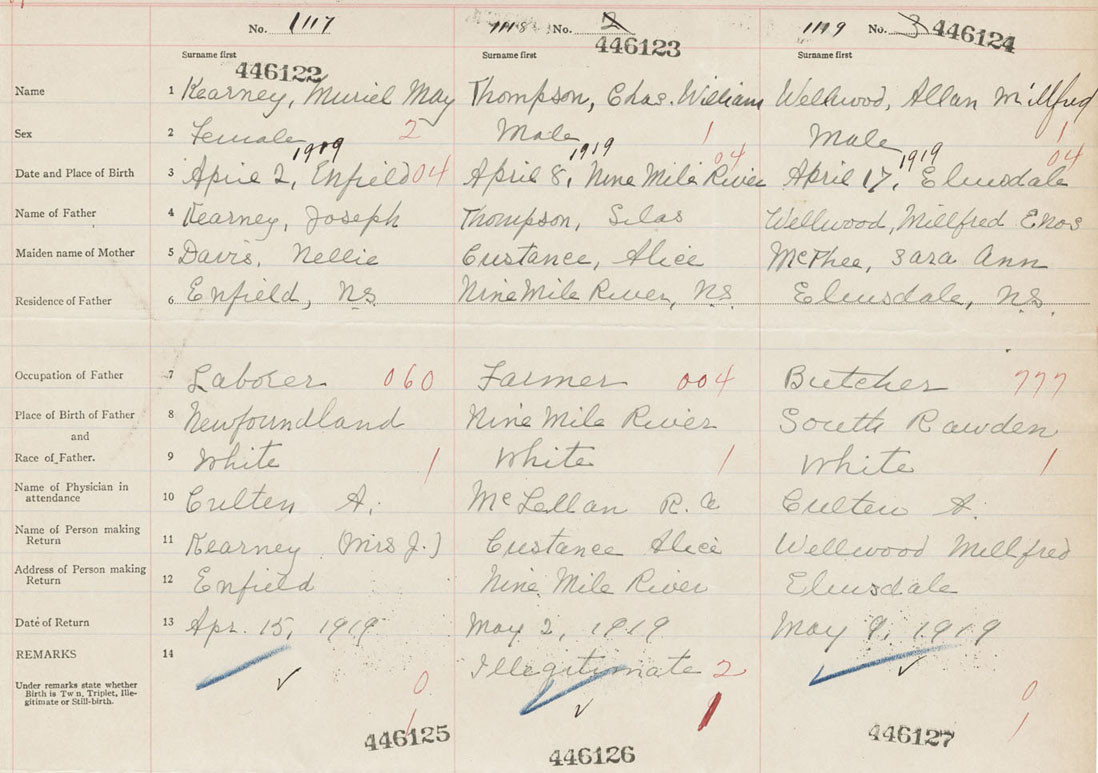 No. 1117 1118 No. 2 1119 No. 3
446122 446123 446124
Surname first Surname first Surname first
Name 1 Kearney, Muriel May Thompson, Edas. William Wellwood, Allan Millfred
Sex 2 Female 2 Male 1 Male 1
1919 1919 04 1919 04
Date and Place of Birth 3 April 2, Enfield 04 April 8, Nine Mile River April 17, Elmsdale
Name of Father 4 Kearney, Joseph Thompson, Silas Wellwood, Millfred Enos
Maiden name of Mother 5 Davis, Nellie Custance, Alice McPhee, Sara Ann
Residence of Father 6 Enfield, N.S. Nine Mile River, N.S. Elmsdale, N.S.
Occupation of Father 7 Laborer 060 Farmer 004 Butcher 777
Place of Birth of Father 8 Newfoundland Nine Mile River South Rawden
and
Race of Father. 9 White 1 White 1 White 1
Name of Physician in
attendance 10 Culten A. McLellan R. A Culten A.
Name of Person making
Return 11 Kearney (Mrs J.) Custance Alice Wellwood Millfred
Address of Person making
Return 12 Enfield Nine Mile River Elmsdale
Date of Return 13 Apr. 15, 1919 May 2, 1919 May 9, 1919
REMARKS 14 Illegitimate 2
Under remarks state whether
Birth is Tw n, Triplet, Ille-
gitimate or Still-birth.
0 0
1 1 1
446125 446126 446127